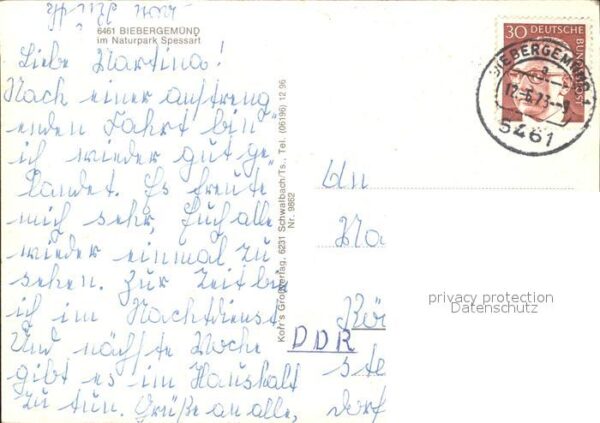 6461 BIEBERGEMÜND
im Naturpark Spessart
Liebe Martina!
Nach einer anstreng
enden Fahrt bin
ich wieder gut ge-
landet. Es freute
mich sehr, Euch alle
wieder einmal zu
sehen. Zur Zeit bin
ich im Nachtdienst
Und nächste Woche
gibt es im Haushalt
zu tun. Grüße an alle,
Kofr's Großverlag, 6231 Schwalbach/Ts., Tel. (06196) 12 96
Nr. 9862
30 DEUTSCHE BUNDESPOST
BIEBERGEMÜND 1
12.-6.73.-9
6461
An
Ma
Kör
DDR
ste
dorf
privacy protection
Datenschutz